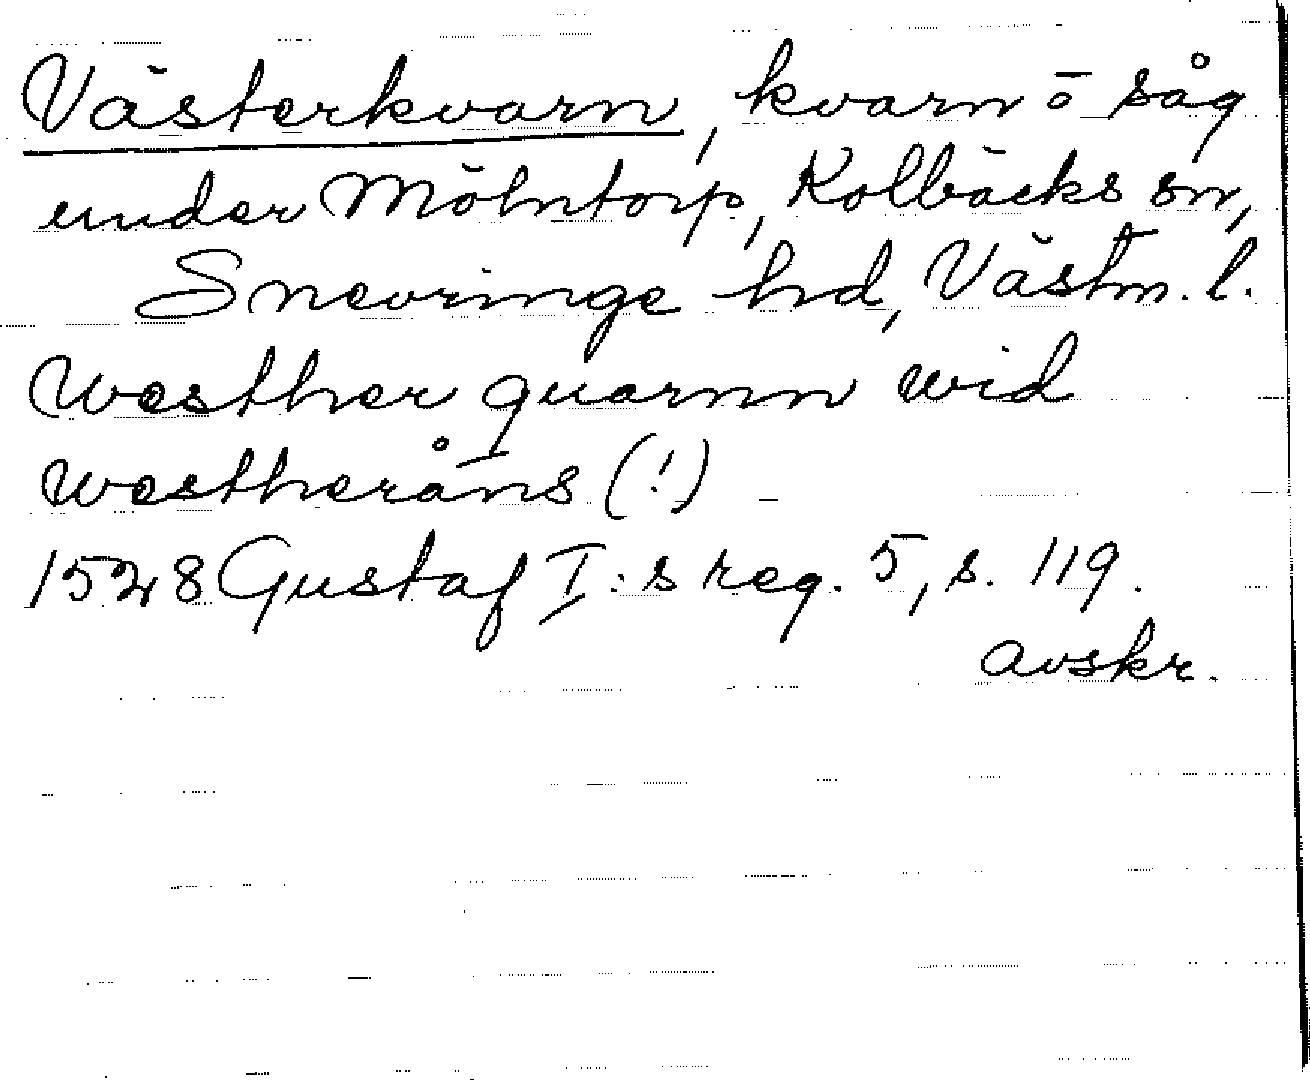 Västerkvarn, kvarn o såg
under Mölntorp, Kolbäcks sn,
Snevringe hd, Västm. l.
Westher quarnn wid
westheråns (!) -
1528 Gustaf I:s reg. 5, s. 119.
avskr.